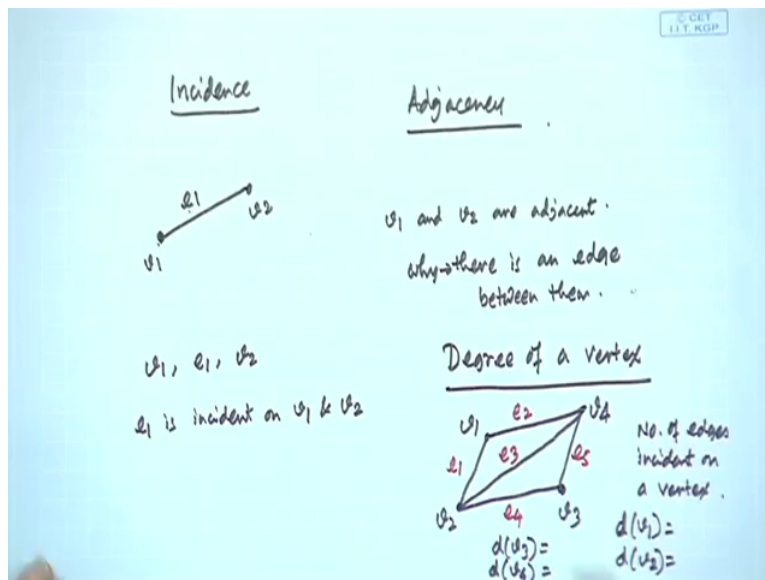 © CET
I.I.T. KGP
Incidence
e1
v1
v2
v1, e1, v2
e1 is incident on v1 & v2
Adjacency
v1 and v2 are adjacent.
why→there is an edge
between them.
Degree of a vertex
v1
e2
v4
e1
e3
e5
v2
e4
v3
No. of edges
incident on
a vertex.
d(v1)=
d(v2)=
d(v3)=
d(v4)=